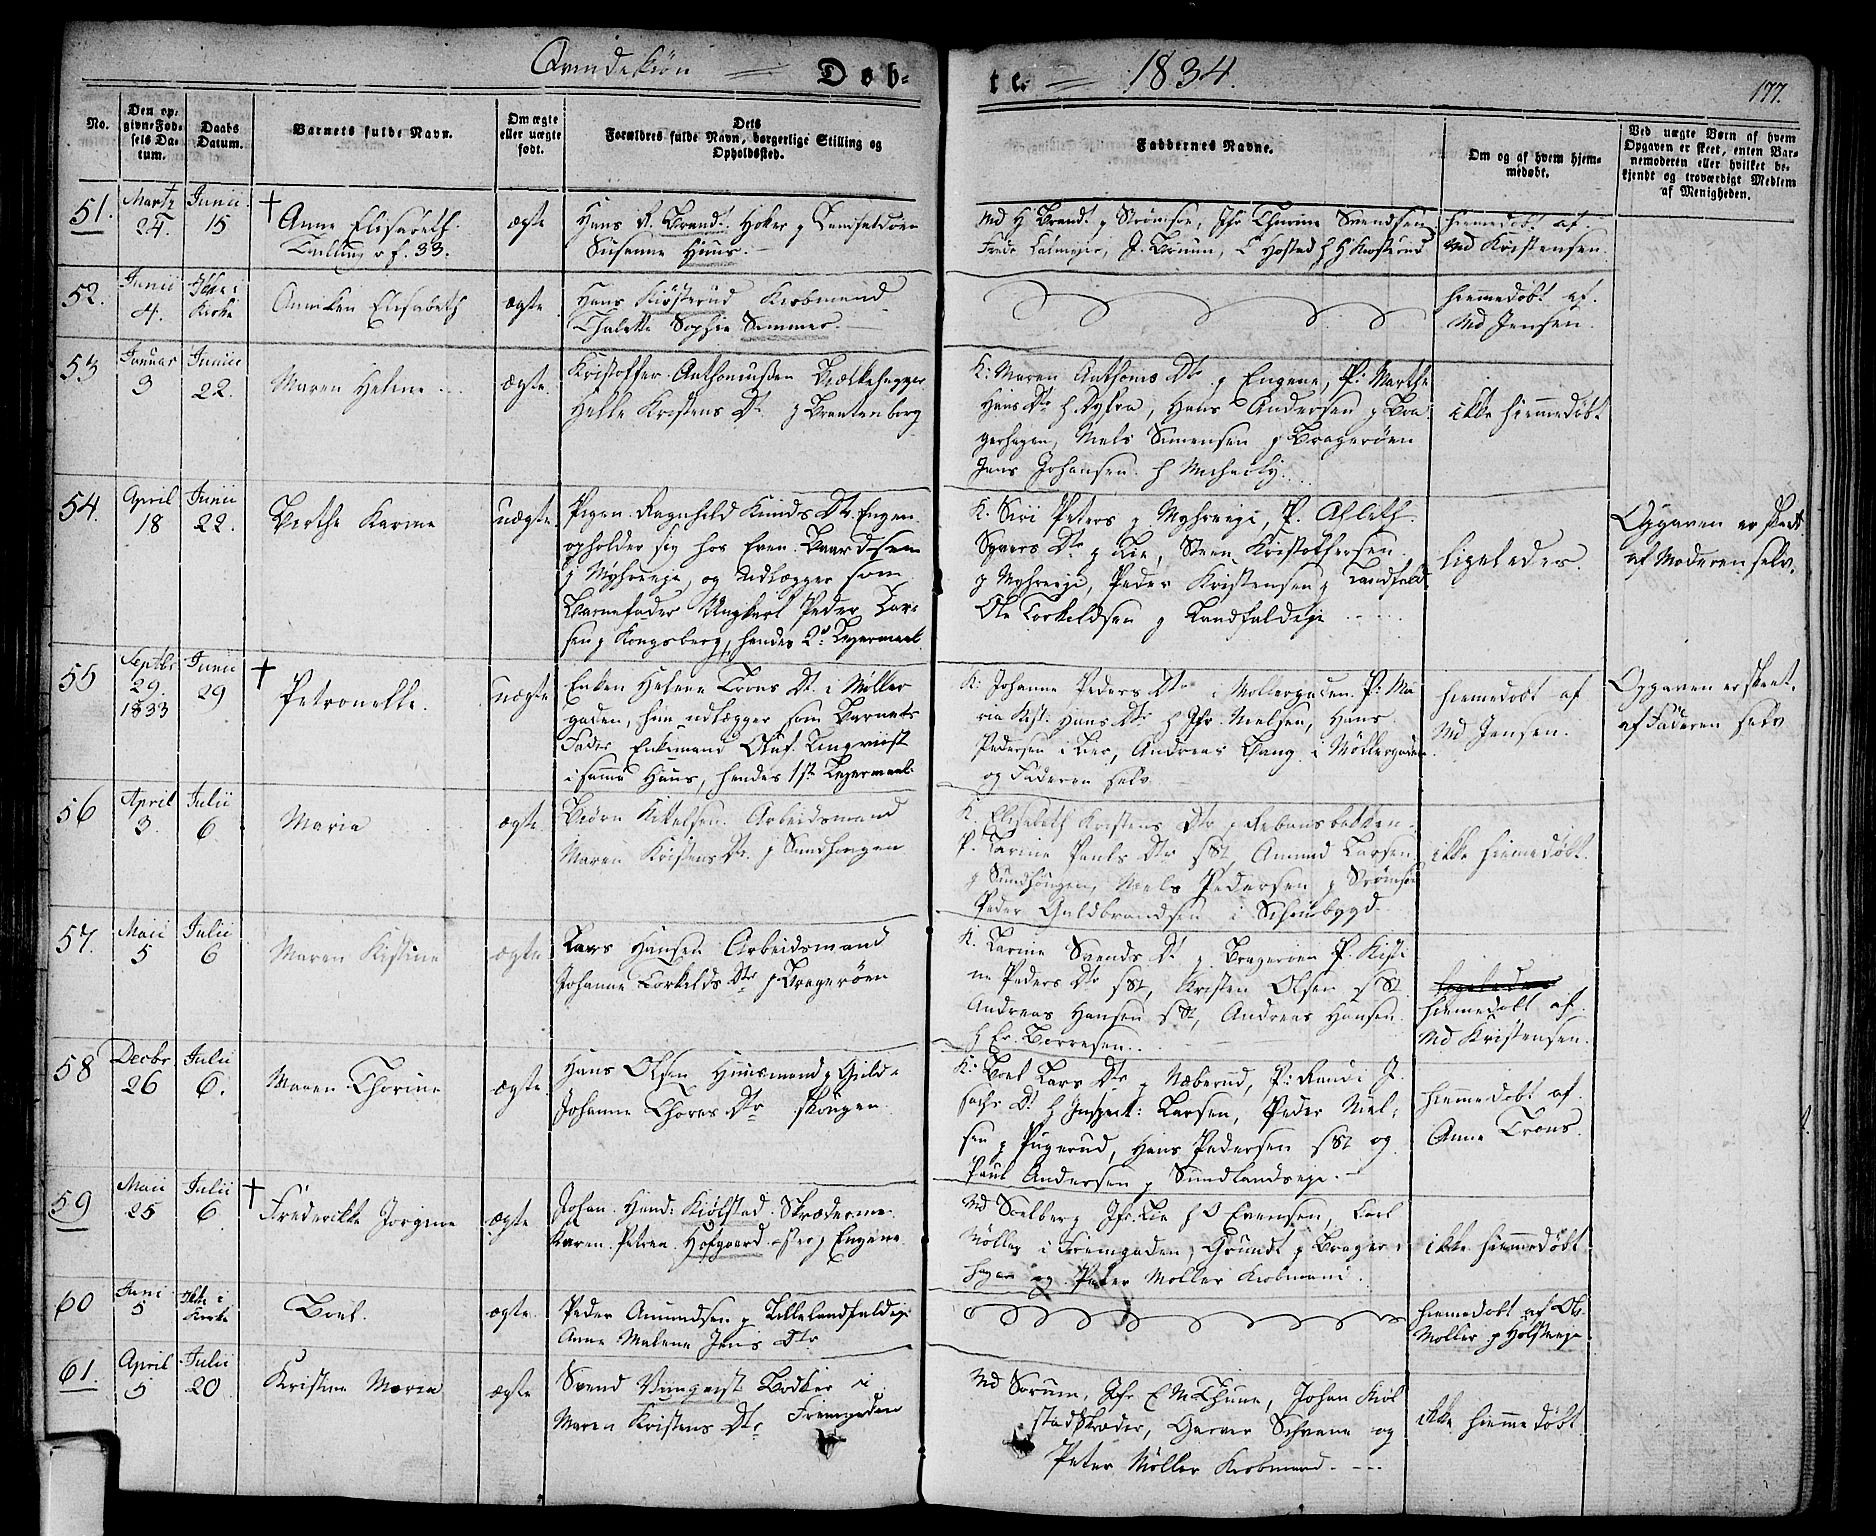 Qvindekiøn Døb-
te. 1834. 177.
No.
Den op-
givne Fød-
sels Da-
tum.
Daabs
Datum.
Barnets fulde Navn.
Om ægte
eller uægte
født.
Dets
Forældres fulde Navn, borgerlige Stilling og
Opholdssted.
Faddernes Navne.
Om og af hvem hjem-
medøbt.
Ved uægte Børn af hvem
Opgaven er skeet, enten Bar-
nemoderen eller hvilket be-
kjendt og troværdigt Medlem
af Menigheden.
51. Martz 24. Junii 15
Anne Elisabeth
f. 33.
ægte
Hans Brandt Høker
Susanne Huus.
Md H Brandt p Strømsøe, Jfr Thrine Svendsen
hiemmedøbt af
Md Kristensen.
52. Junii 4. Ikke i Kirke
Anniken Elisabeth
ægte
Hans Kiøsterud Kiøbmand
Thalette Sophie Semmer.
hiemmedøbt af
Md Jensen.
53 Januar 3 Junii 22.
Maren Helene
ægte.
Kristoffer Anthoniussen Bielkehugger
Helle Kristens Dtr p Brantenborg
K: Maren Anthonis Dtr p Engene, P: Marthe
Hans Dtr h Dyhra, Hans Andersen p Bra-
gerhagen, Niels Simensen p Bragerøen
Jens Johansen h
ikke hiemmedøbt
54. April 18 Junii 22.
Berthe Karine
uægte
Pigen Ragnhild Knuds Dtr Engen
opholder sig hos Even Baardsen
p Myhreeje, og udlægger som
Barnefader Ungkarl Peder Lar-
sen p Kongsberg, hendes 2d Leiermaal
K. Siri Peters p Myhreeje, P.
Syvers Dtr p Lie, Steen Kristoffersen
p Myhreeje, Peder Kristensen p Landfald
Ole Torkeldsen p Landfaldeje
ligeledes.
Opgaven er skeet
af Moderen selv.
55 Septbr 29. 1833 Junii 29
Petronelle.
uægte
Enken Helene Trons Dt. i Møller
gaden, hun udlægger som Barnets
Fader Enkemand Oluf Linqviist
i samme Huus, hendes 1st Leiermaal.
K. Johanne Peders Dtr i Møllergaden P: Ma
ria Kist: Hans Dtr h Jfr. Nielsen, Hans
Pedersen i Lier, Andreas Bang i Møllergaden
og Faderen selv
hiemmedøbt af
Md Jensen.
Opgaven er skeet.
af Faderen selv
56 April 3. Julii 6.
Maria
ægte.
Biørn Kittelsen Arbeidsmand
Maren Kristens Dtr. p Sundhougen
K. Elisabeth Kristens Dtr p Rebansbakken
P. Karine Pauls Dtr sSt, Amund Larsen
p Sundhougen, Niels Pedersen p Strømsøe
Peder Guldbrandsen i
ikke hiemmedøbt.
57. Maii 5 Julii 6
Maren Kistine
ægte
Lars Hansen Arbeidsmand
Johanne Torkelds Dtr p Bragerøen
K. Karine Svends Dt p Bragerøen P. Kisti
ne Peders Dtr sSt, Kristen Olsen sSt
Andreas Hansen sSt, Andreas Hansen
h Er. Børresen.
ligeledes
hiemmedøbt af
Md Kristensen.
58 Decbr 26 Julii 6.
Maren Thorine
ægte.
Hans Olsen Huusmand p Guld-
Johanne Thores Dtr skougen
K: Boel Lars Dtr p Næberud, P: Randi J-
sachs Dt h Inspekt: Larsen, Peder Niel-
sen p Pugerud, Hans Pedersen sSt og
Paul Andersen p Sundlandseje.
hiemmedøbt af
Anne Trons.
59 Maii 25 Julii 6
Frederikke Jorgine
ægte.
Johan Hend: Kiølstad Skræderme-
Karen Petrea Hofgaard ster p Engene
Md Solberg Jfr. Lie h O Evensen, Carl
Møller i Fremgaden, Grundt p Brager-
hagen og Peter Møller Kiøbmand.
ikke hiemmedøbt
60 Juni 5 Ikke i Kirke
Boel.
ægte.
Peder Amundsen p Lillelandfaldeje
Anne Malene Jens Dtr
hiemmedøbt af Ol.
Møller p Holsteeje
61. April 5 Julii 20
Kristine Maria
ægte
Svend Vimqvist Bødker i
Maren Kristens Dtr. Fremgaden
Md Sorum, Jfr E M Thune, Johan Kiøl
stad Skræder, Garver Schvane og
Peter Møller Kiøbmand.
ikke hiemmedøbt